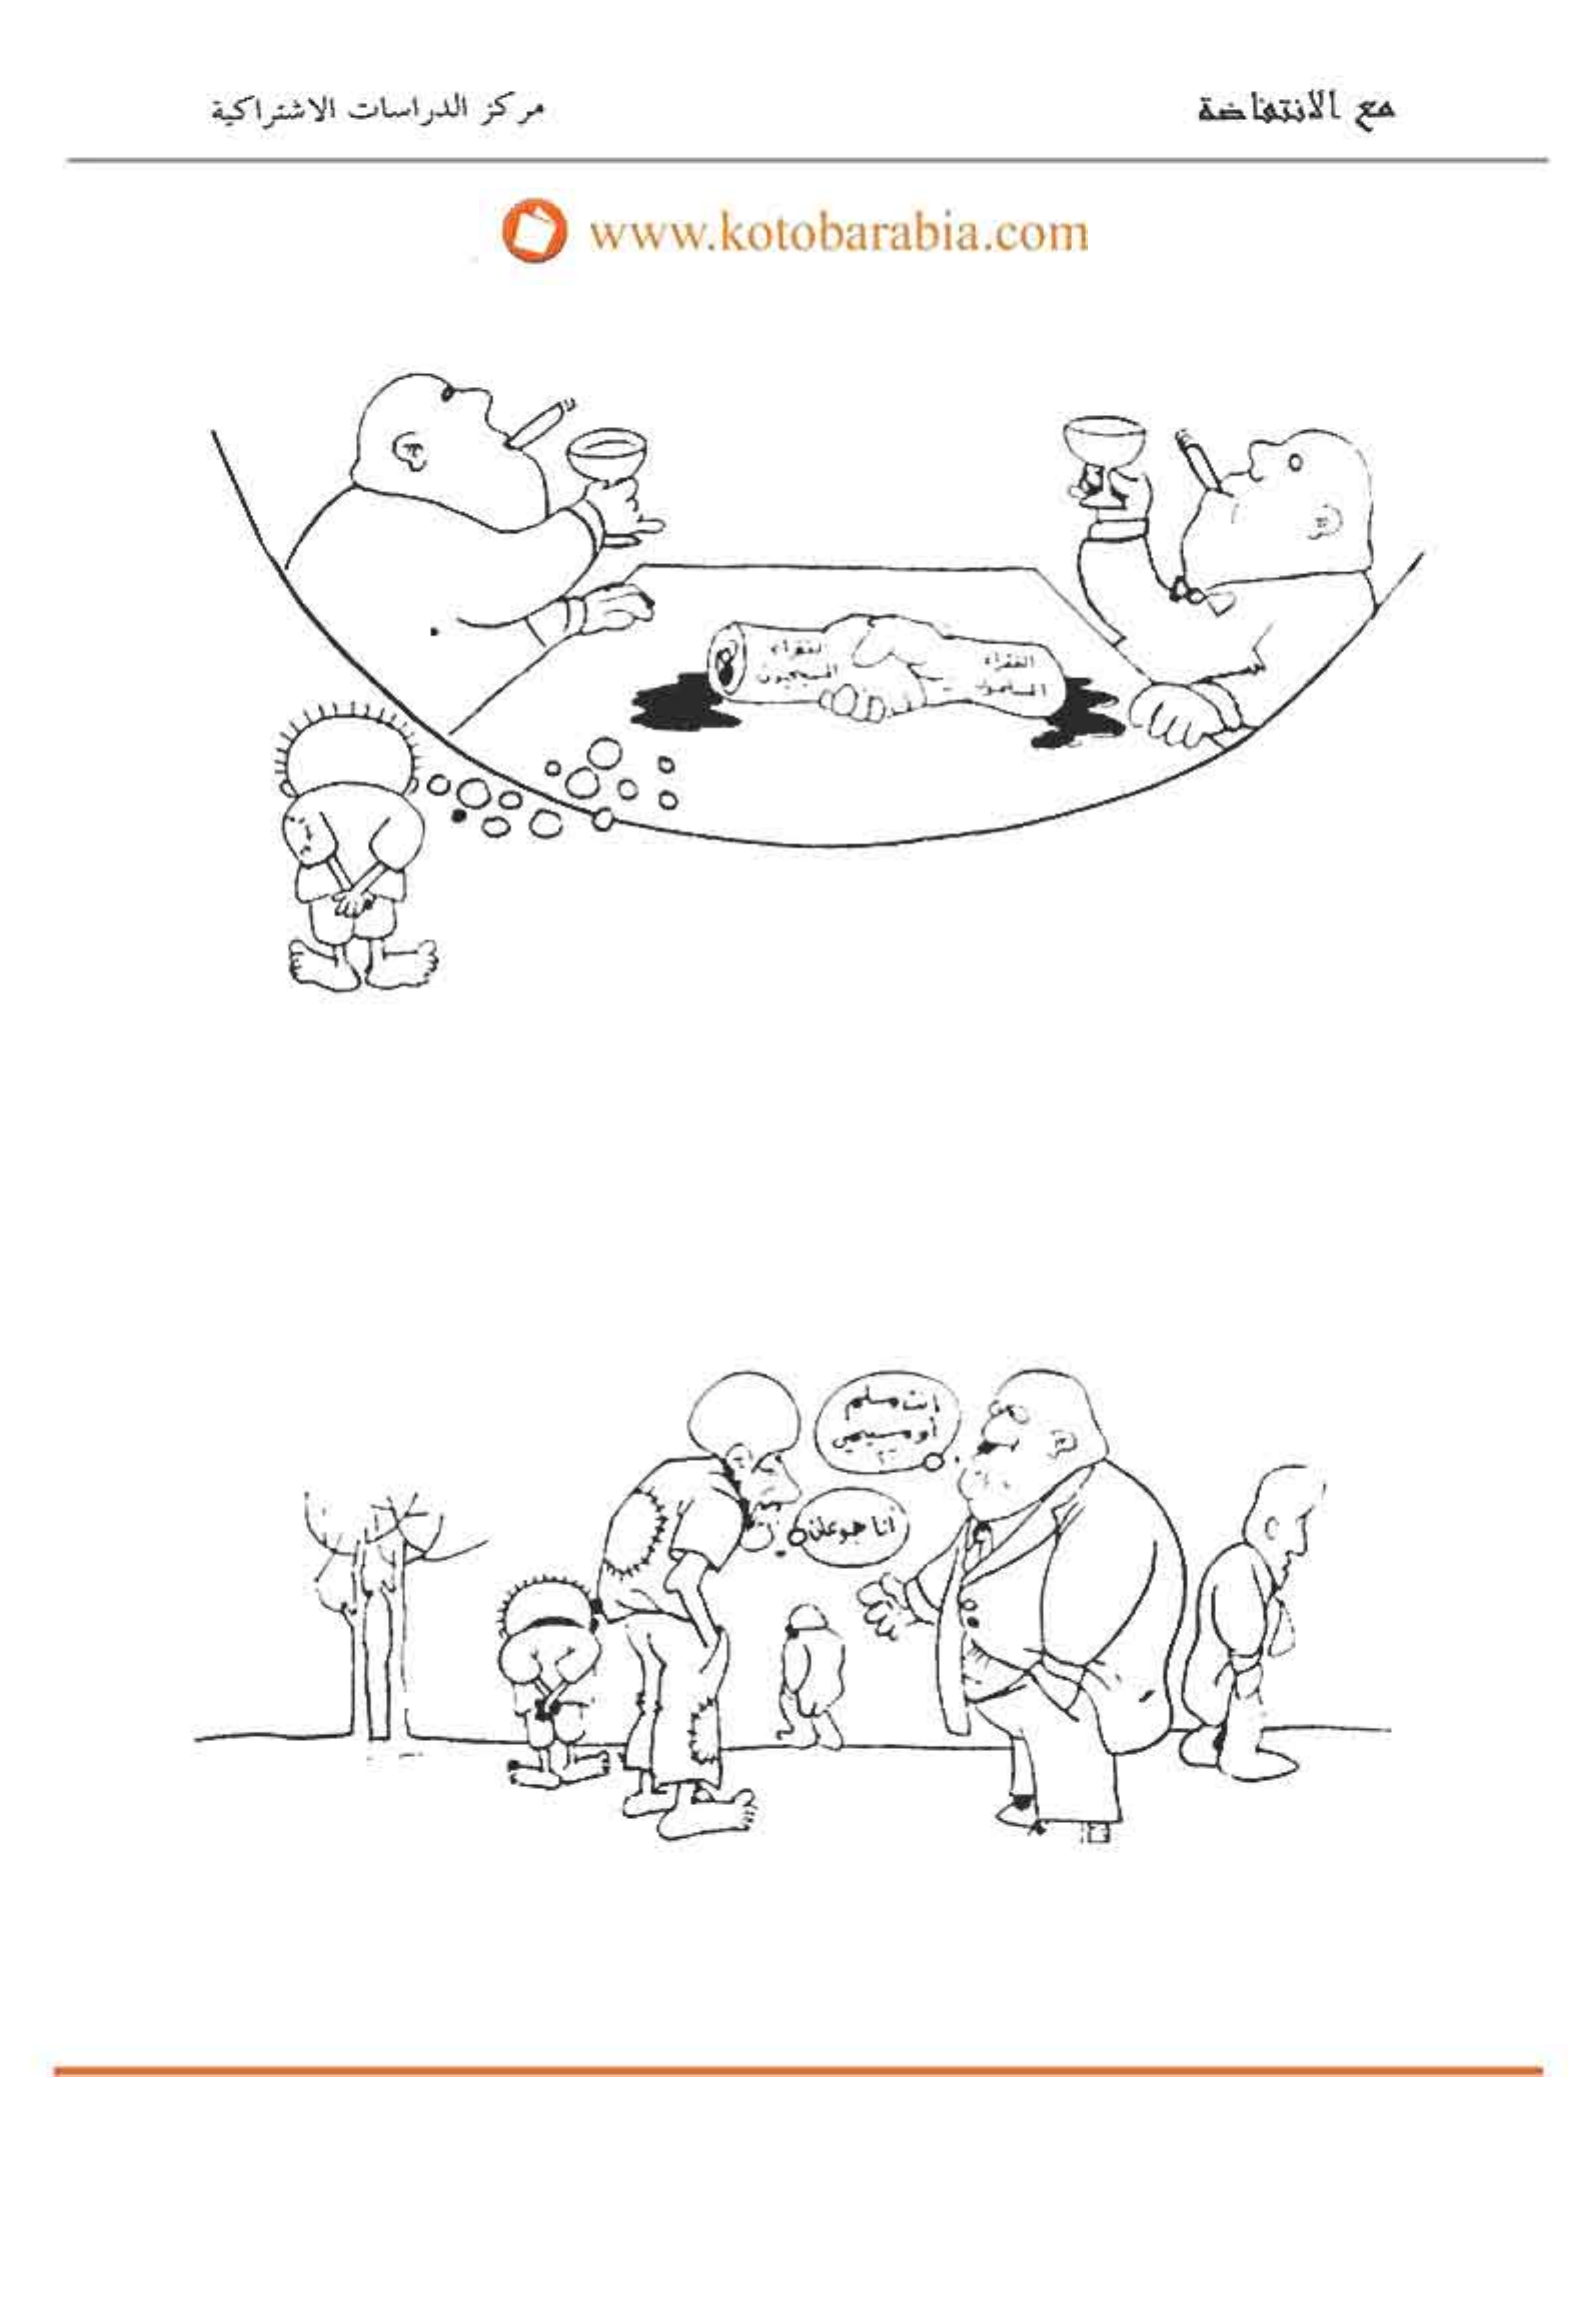 مع الانتفاضة
مركز الدراسات الاشتراكية
www.kotobarabia.com
الفقراء
المسلمون
الفقراء
المسيحيون
أنت مسلم
أو مسيحي
؟؟
أنا جوعان